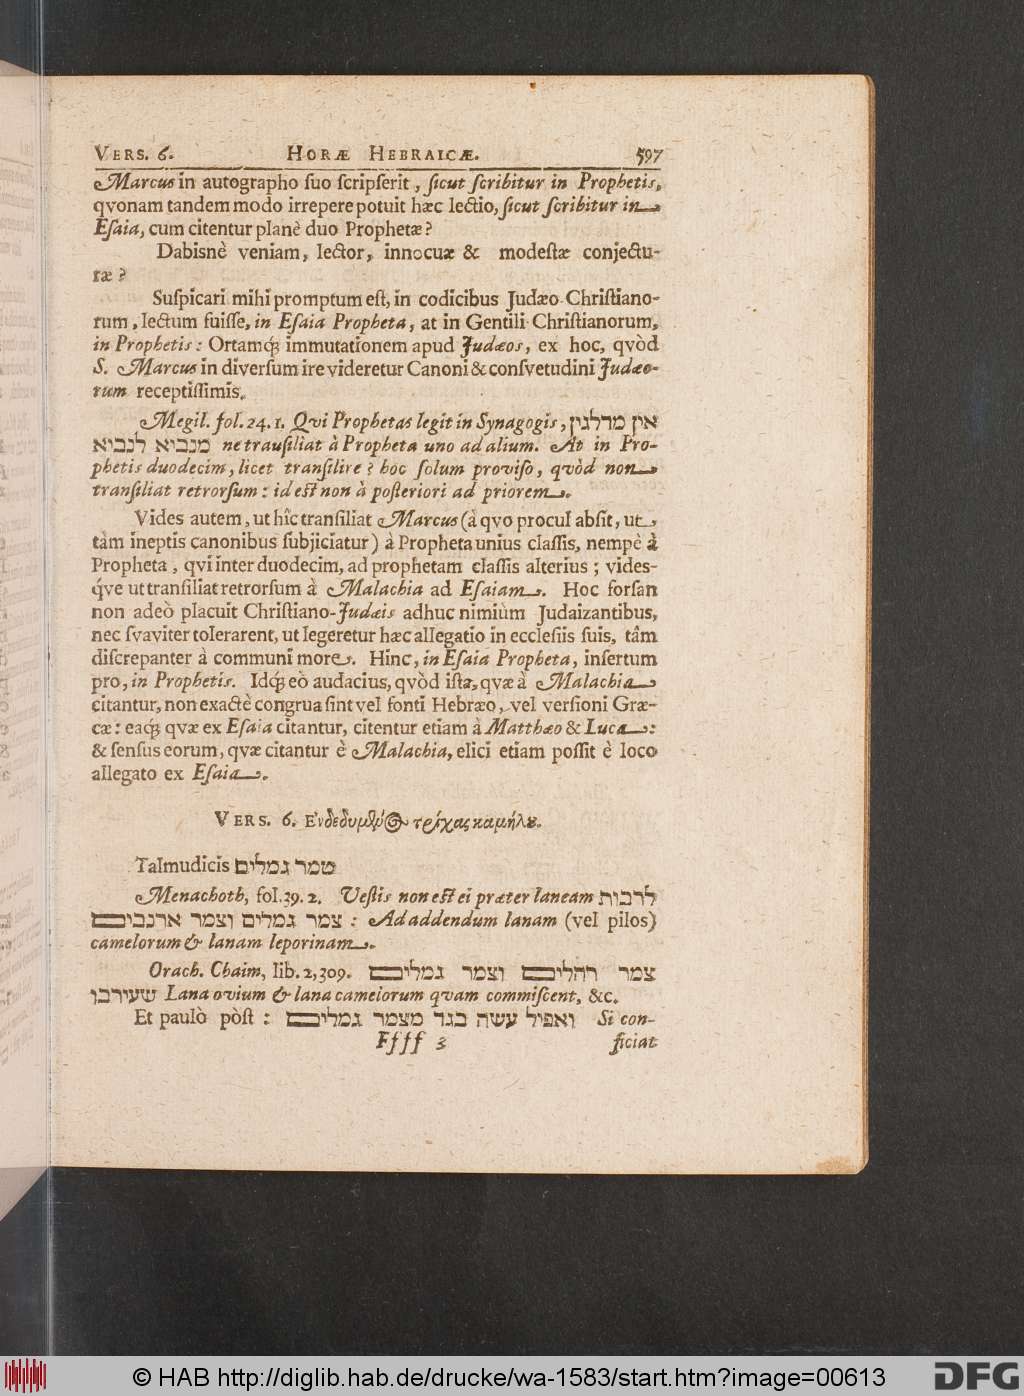 VERS. 6. HORÆ HEBRAICÆ. 597
Marcus in autographo ſuo ſcripſerit, ſicut ſcribitur in Prophetis,
qvonam tandem modo irrepere potuit hæc lectio, ſicut ſcribitur in
Eſaia, cum citentur planè duo Prophetæ?
Dabisnè veniam, lector, innocuæ & modeſtæ conjectu-
ræ?
Suſpicari mihi promptum eſt, in codicibus Judæo-Chriſtiano-
rum, lectum fuiſſe, in Eſaia Propheta, at in Gentili-Chriſtianorum,
in Prophetis: Ortamq; immutationem apud Judæos, ex hoc, qvòd
S. Marcus in diverſum ire videretur Canoni & conſvetudini Judæo-
rum receptiſſimis.
Megil. fol. 24. 1. Qvi Prophetas legit in Synagogis, אין מדלגין
מנביא לנביא ne tranſiliat à Propheta uno ad alium. At in Pro-
phetis duodecim, licet tranſilire? hoc ſolum proviſo, quòd non
tranſiliat retrorſum: id eſt non à poſteriori ad priorem.
Vides autem, ut hîc tranſiliat Marcus (à qvo procul abſit, ut
tàm ineptis canonibus ſubjiciatur) à Propheta unius claſſis, nempè à
Propheta, qvi inter duodecim, ad prophetam claſſis alterius; vides-
q́ve ut tranſiliat retrorſum à Malachia ad Eſaiam. Hoc forſan
non adeò placuit Chriſtiano-Judæis adhuc nimiùm Judaizantibus,
nec ſvaviter tolerarent, ut legeretur hæc allegatio in eccleſiis ſuis, tâm
diſcrepanter à communi more. Hinc, in Eſaia Propheta, inſertum
pro, in Prophetis. Idq; eò audacius, qvòd iſta, qvæ à Malachia
citantur, non exactè congrua ſint vel fonti Hebræo, vel verſioni Græ-
cæ: eaq; qvæ ex Eſaia citantur, citentur etiam à Matthæo & Luca:
& ſenſus eorum, qvæ citantur è Malachia, elici etiam poſſit è loco
allegato ex Eſaia.
VERS. 6. Ἐνδεδυμένος τρίχας καμήλου.
Talmudicis צמר גמלים
Menachoth, fol. 39. 2. Veſtis non eſt ei præter laneam לרבות
צמר גמלים וצמר ארנבים : Ad addendum lanam (vel pilos)
camelorum & lanam leporinam.
Orach. Chaim, lib. 2, 309. צמר רחלים וצמר גמלים
שעירבו Lana ovium & lana camelorum qvam commiſcent, &c.
Et paulò pòſt : ואפיל עשה בגד מצמר גמלים Si con-
Ffff 3 ficiat
© HAB http://diglib.hab.de/drucke/wa-1583/start.htm?image=00613 DFG